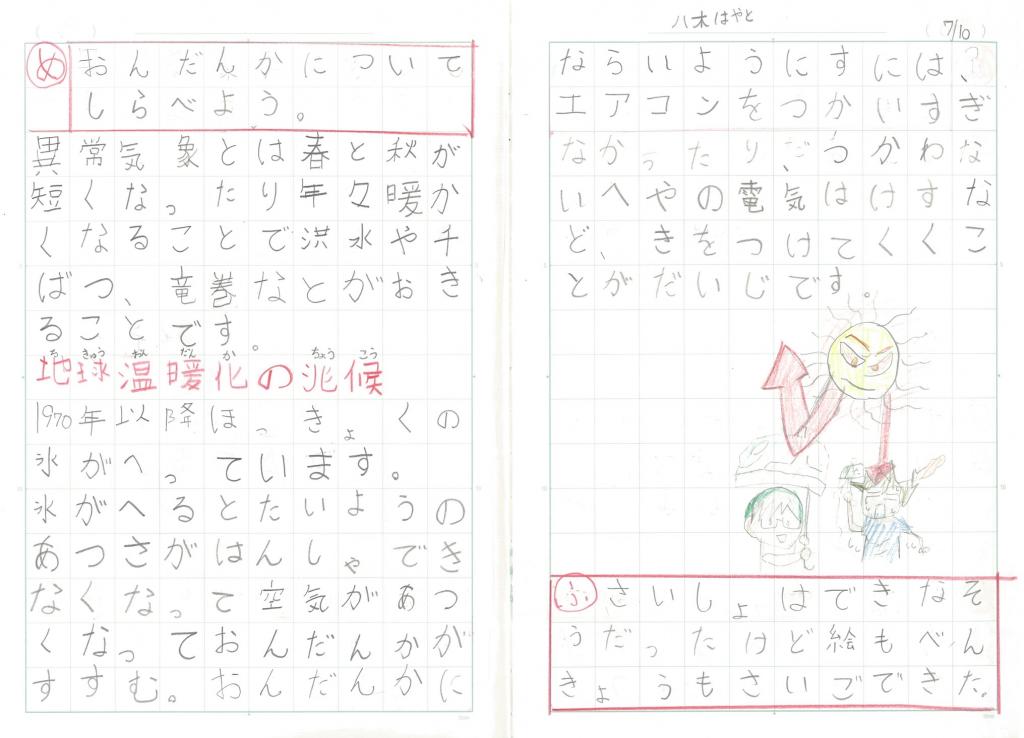 め おんだんかについて
しらべよう。
異常気象とは春と秋が
短くなったり年々暖か
くなることで洪水や干
ばつ、竜巻などがおき
ることです。
ち きゅう おん だん か ちょう こう
地球温暖化の兆候
1970年以降ほっきょくの
氷がへっています。
氷がへるとたいようの
あつさがはんしゃでき
なくなって空気があつ
くなっておんだんかが
すすむ。おんだんかに
八木はやと
7/10
ならいようにすには、
エアコンをつかいすぎ
なかったり、つかわな
いへやの電気はけすな
ど、きをつけてくくこ
とがだいじです。
ふ さいしょはできなそ
うだったけど絵もべん
きょうもさいごできた。